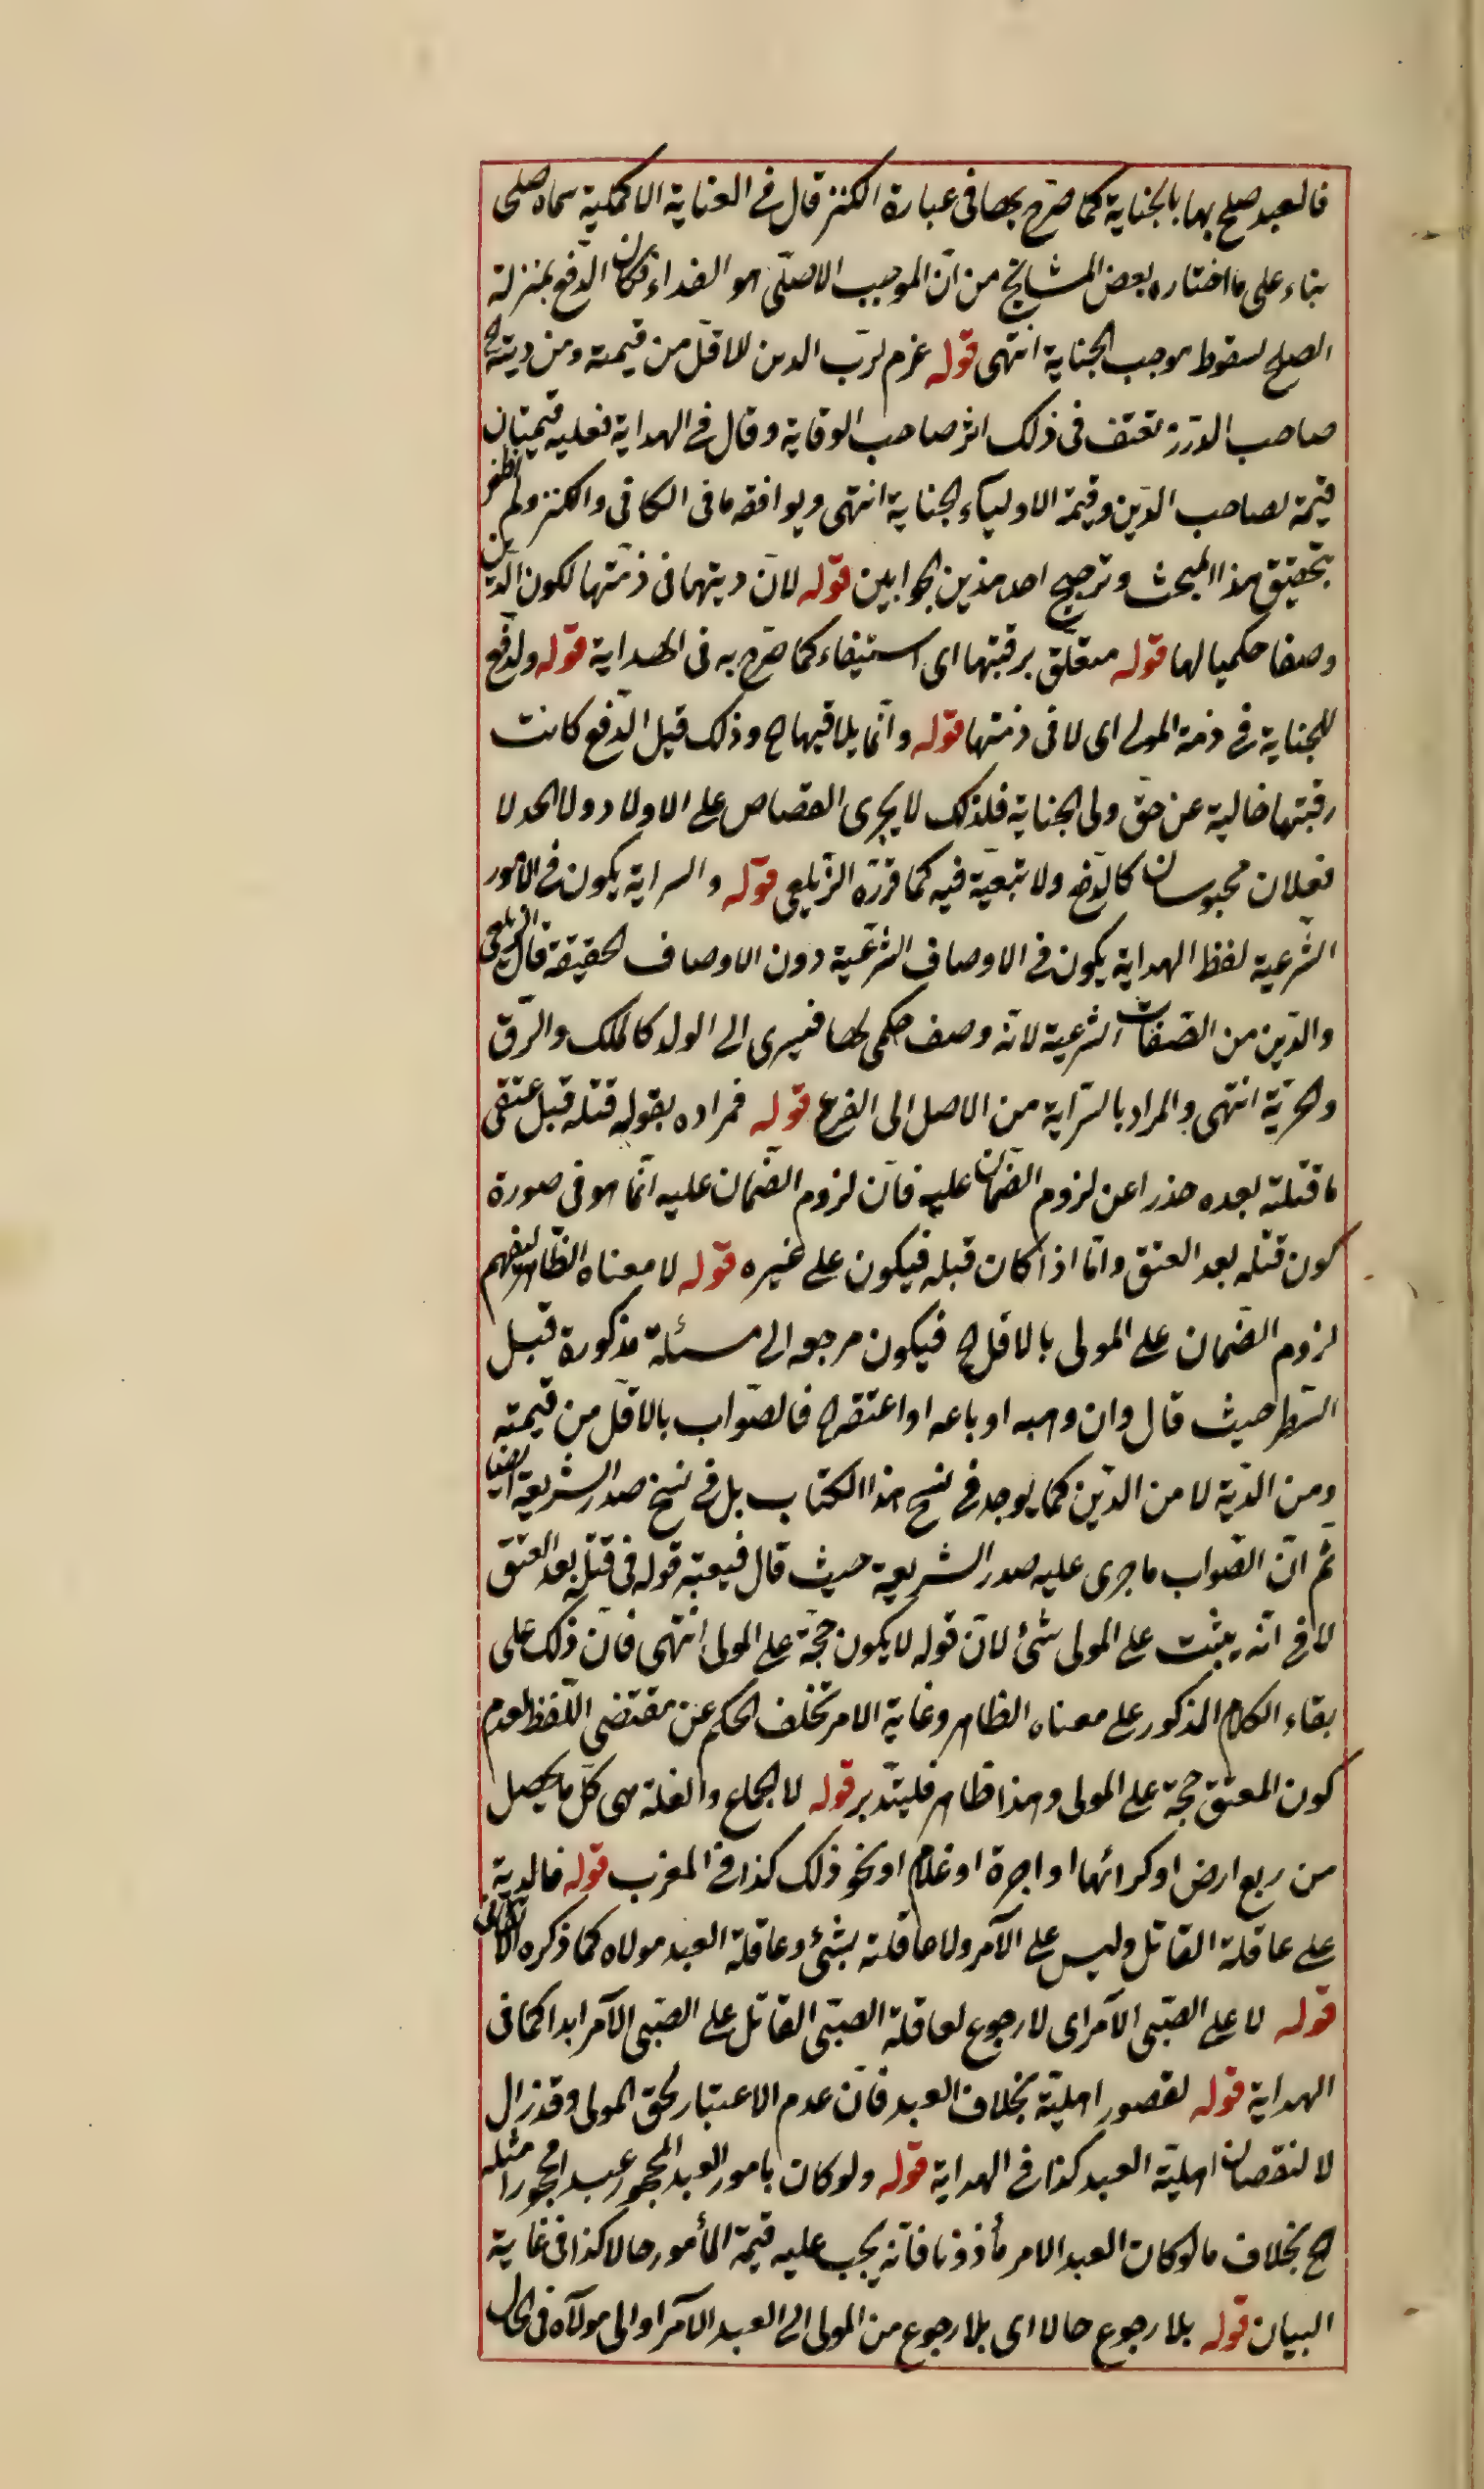 فالعبد صلح بها بالجناية كما صرح بها فى عبارة الكنز قال فى العناية الاكملية سماه صلحى
بناء على ما اختاره بعض المشايخ من انّ الموجب الاصلّى هو الفداء فكان الدّفع بمنزلة
الصلح لسقوط موجب الجناية انتهى قوله غرم لربّ الدين للاقلّ من قيمته ومن ديته الخ
صاحب الدّرر تعتف فى ذلك اثر صاحب الوقاية وقال فى الهداية فعليه قيمتان
قيمة لصاحب الدّين وقيمة الاولياء لجناية انتهى ويوافقه ما فى الكافى والكنز ولم اظفر
بتحقيق هذا المبحث وترجيح احد هذين الجوابين قوله لانّ ديتهما فى ذمّتها لكون الدّين
وصفا حكميا لها قوله متعلّق برقبتها اى استيفاء كما صرّح به فى الهداية قوله ولدفع
للجناية فى ذمة المولى اى لا فى ذمتها قوله وانّما يلاقيها الخ وذلك قيل الدّفع كانت
رقبتها خالية عن حقّ ولى الجناية فلذلك لا يجرى القصاص على الاولاد ولا الحد لا
نعلان محبوسان كالدّفع ولا تبعيّة فيه كما قرّره الزّيلعى قوله والسراية يكون فى الامور
الشّرعية لفظ الهداية يكون فى الاوصاف الشّرعّية دون الاوصاف الحقيقة قال الزيلعى
والدّين من الصّفات الشرعية لانّه وصف حكمى لها فيسرى الى الولد كالملك والرّق
والحرّية انتهى والمراد بالسّراية من الاصل الى الفرع قوله فمراده بقوله قتله قبل عتقى
ما قتلته بعده حذرا عن لزوم الضّمان عليه فانّ لزوم الضّمان عليه انّما هو فى صورة
كون قتله بعد العتق وامّا اذا كان قبله فيكون على غيره قوله لا معناه الظّاهر ليفهم
لزوم الضّمان على المولى بالاقل الخ فيكون مرجعه الى مسئلة مذكورة قبل
السّطر حيث قال وان وهبه او باعه او اعتقه الخ فالصّواب بالاقلّ من قيمته
ومن الدّية لا من الدّين كما يوجد فى نسخ هذا الكتاب بل فى نسخ صدر الشّريعة ايضا
ثمّ انّ الصّواب ما جرى عليه صدر الشريعة حيث قال فيعتبر قوله فى قتله بعد العتق
لا فى انّه يثبت على المولى شئ لانّ قوله لا يكون حجّة على المولى انتهى فانّ ذلك على
بقاء الكلام المذكور على معناه الظاهر وغاية الامر تخلف الحكم عن مقتضى اللّفظ لعدم
كون المعتق حجّة على المولى وهذا ظاهر فليتدّبر قوله لا الجماع والغلة هى كلّ ما يحصل
من ريع ارض او كرائها او اجرة او غلام او نحو ذلك كذا فى المغرب قوله فالدية
على عاقلة القاتل وليس على الآمر ولا عاقلته بشئ وعاقلة العبد مولاه كما ذكره الاتقانى
قوله لا على الصّبى الآمر اى لا رجوع لعاقلة الصبّى القاتل على الصّبى الآمر ابدا كما فى
الهداية قوله لقصور اهليّة بخلاف العبد فانّ عدم الاعتبار لحق المولى وقد زال
لا لنقصان اهليّة العبد كذا فى الهداية قوله ولو كان مامور العبد المحجور عبدا محجورا مثله
الخ بخلاف ما لو كان العبد الامر مأذونا فانّه يجب عليه قيمة المأمور حالا كذا فى غاية
البيان قوله بلا رجوع حالا اى بلا رجوع من المولى الى العبد الآمر او الى مولآه فى الحال